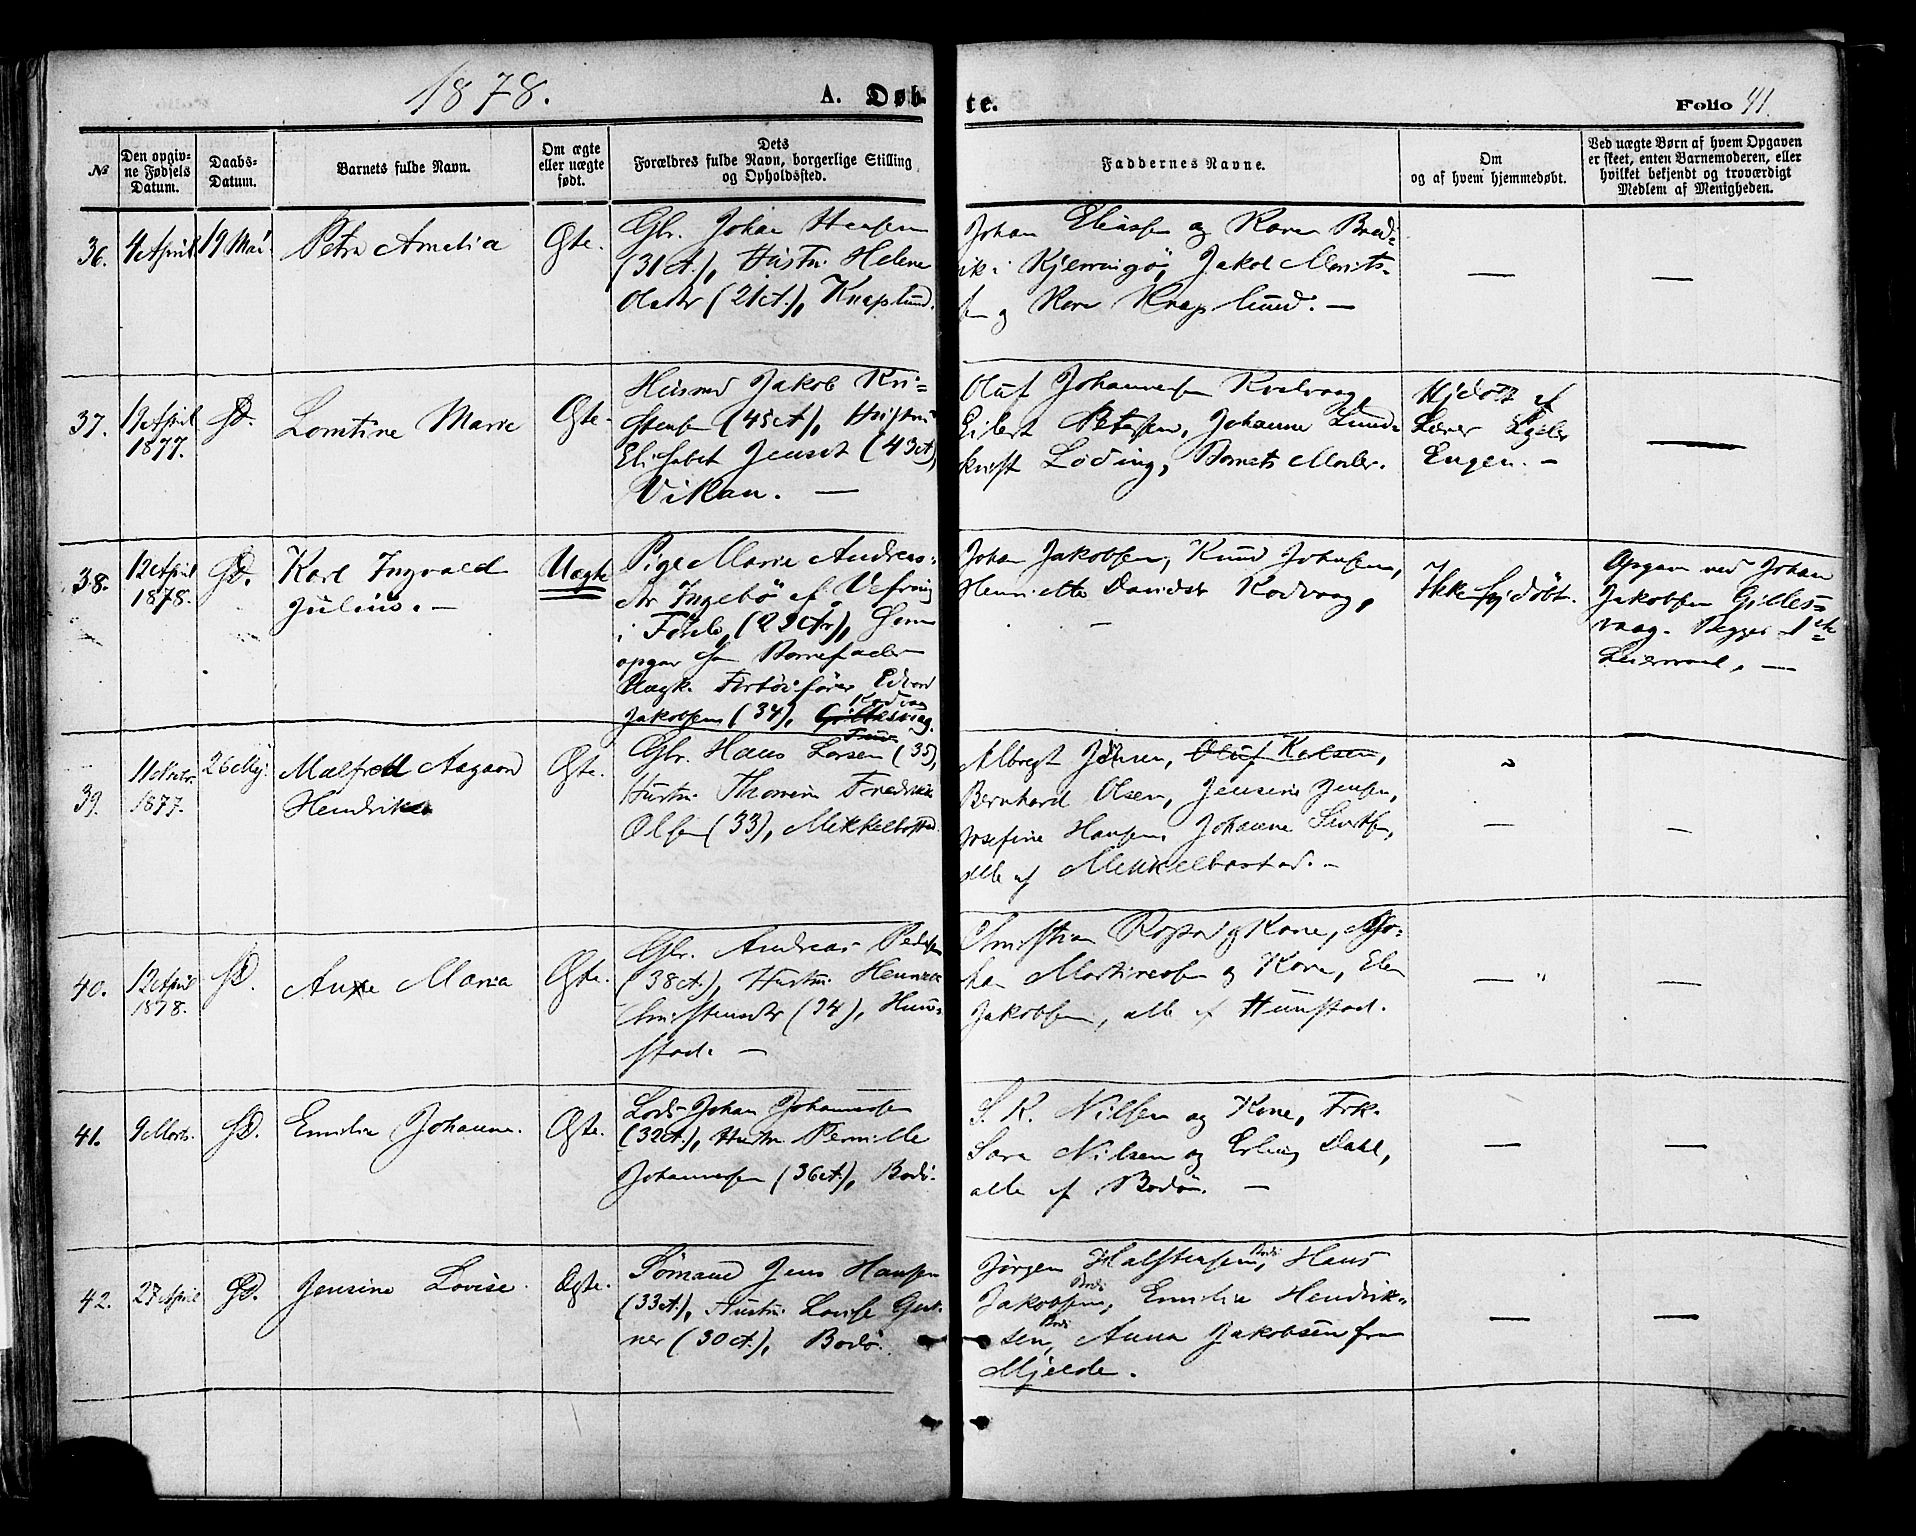 1878.
A. Døbte.
Folio 41.
№
Den opgivne Fødsels Datum.
Daabs-Datum.
Barnets fulde Navn.
Om ægte eller uægte født.
Dets Forældres fulde Navn, borgerlige Stilling og Opholdssted.
Faddernes Navne.
Om og af hvem hjemmedøbt.
Ved uægte Børn af hvem Opgaven er skeet, enten Barnemoderen, eller hvilket bekjendt og troværdigt Medlem af Menigheden.
36.
4 April
19 Mai
Petra Amelia
Ægte.
Gbr. Johan Hansen
(31 A.), Hustru Helene
Olsdtr (21 A.), Knaplund.
Johan Eliassen og Kone Bred-
vik i Kjerringö, Jakob Morits-
sen og Kone Knaplund. —
—
—
37.
April
1877.
SD.
Marie
Ægte.
Husmd Jakob Kri-
stensen (45 A.), Hustru
Elisabet Jensdt (43 A.),
Vikan. —
Oluf Johannesen Kvalvaag,
Eilert Petersen, Johanne Lund-
kvist Löding, Barnets Moder.
Hjdøbt af
Lærer
Engen. —
—
38.
12 April
1878.
SD.
Karl Ingvald
Julius. —
Uægte
Pige Marie Andreas-
dtr Ingebö af Vefsen
i (29 A.), som
opgav som Barnefader
Uægte. Edvard
Jakobsen (34), Gillesvaag.
Kodvaag
Johan Jakobsen, Knud Johnsen,
Henriette Davidsdtr Kodvaag,
—
Ikke hjdöbt.
Opgav ved Johan
Jakobsen Gilles-
vaag. Begges 1ste
Leiermaal. —
39.
11
1877.
26 Maj.
Malfred Aagaard
Hendrika
Ægte.
Gbr. Hans Larsen (35),
Hustru Thomine Fredrikke
Olsen (33), Mikkelbostad.
Albregt Jensen, Oluf Karlsen,
Bernhard Olsen, Jensine Jensen,
Josefine Hansen, Johanne
alle af Mikkelbostad. —
—
—
40.
12 April
1878.
SD.
Anne Maria
Ægte.
Gbr. Andreas Peders
(38 A.), Hustru
Christensdtr (34), Hun-
stad. —
Christian og Kone, Jo-
han Martinesen og Kone, Elen
Jakobsen, alle af Hunstad.
— "
—
41.
9 Marts.
SD.
Emilie Johanne.
Ægte.
Lods Johan Johannesen
(32 A.), Hustru Pernille
Johannesen (36 A.), Bodö.
S. K. Nilsen og Kone, Frk.
Sara Nilsen og Erling Dahl,
alle af Bodön. —
—
—
42.
27 April
SD.
Jensine Lovise.
Ægte.
Sömand Jens Hansen
(33 A.), Hustru Lovise
ner (30 A.), Bodö.
Jørgen Halstensen, Bodö Hans
Jakobsen, Bodö Emilie Hendrik-
sen, Bodö Anna Jakobsen fra
Mjelde.
—
—